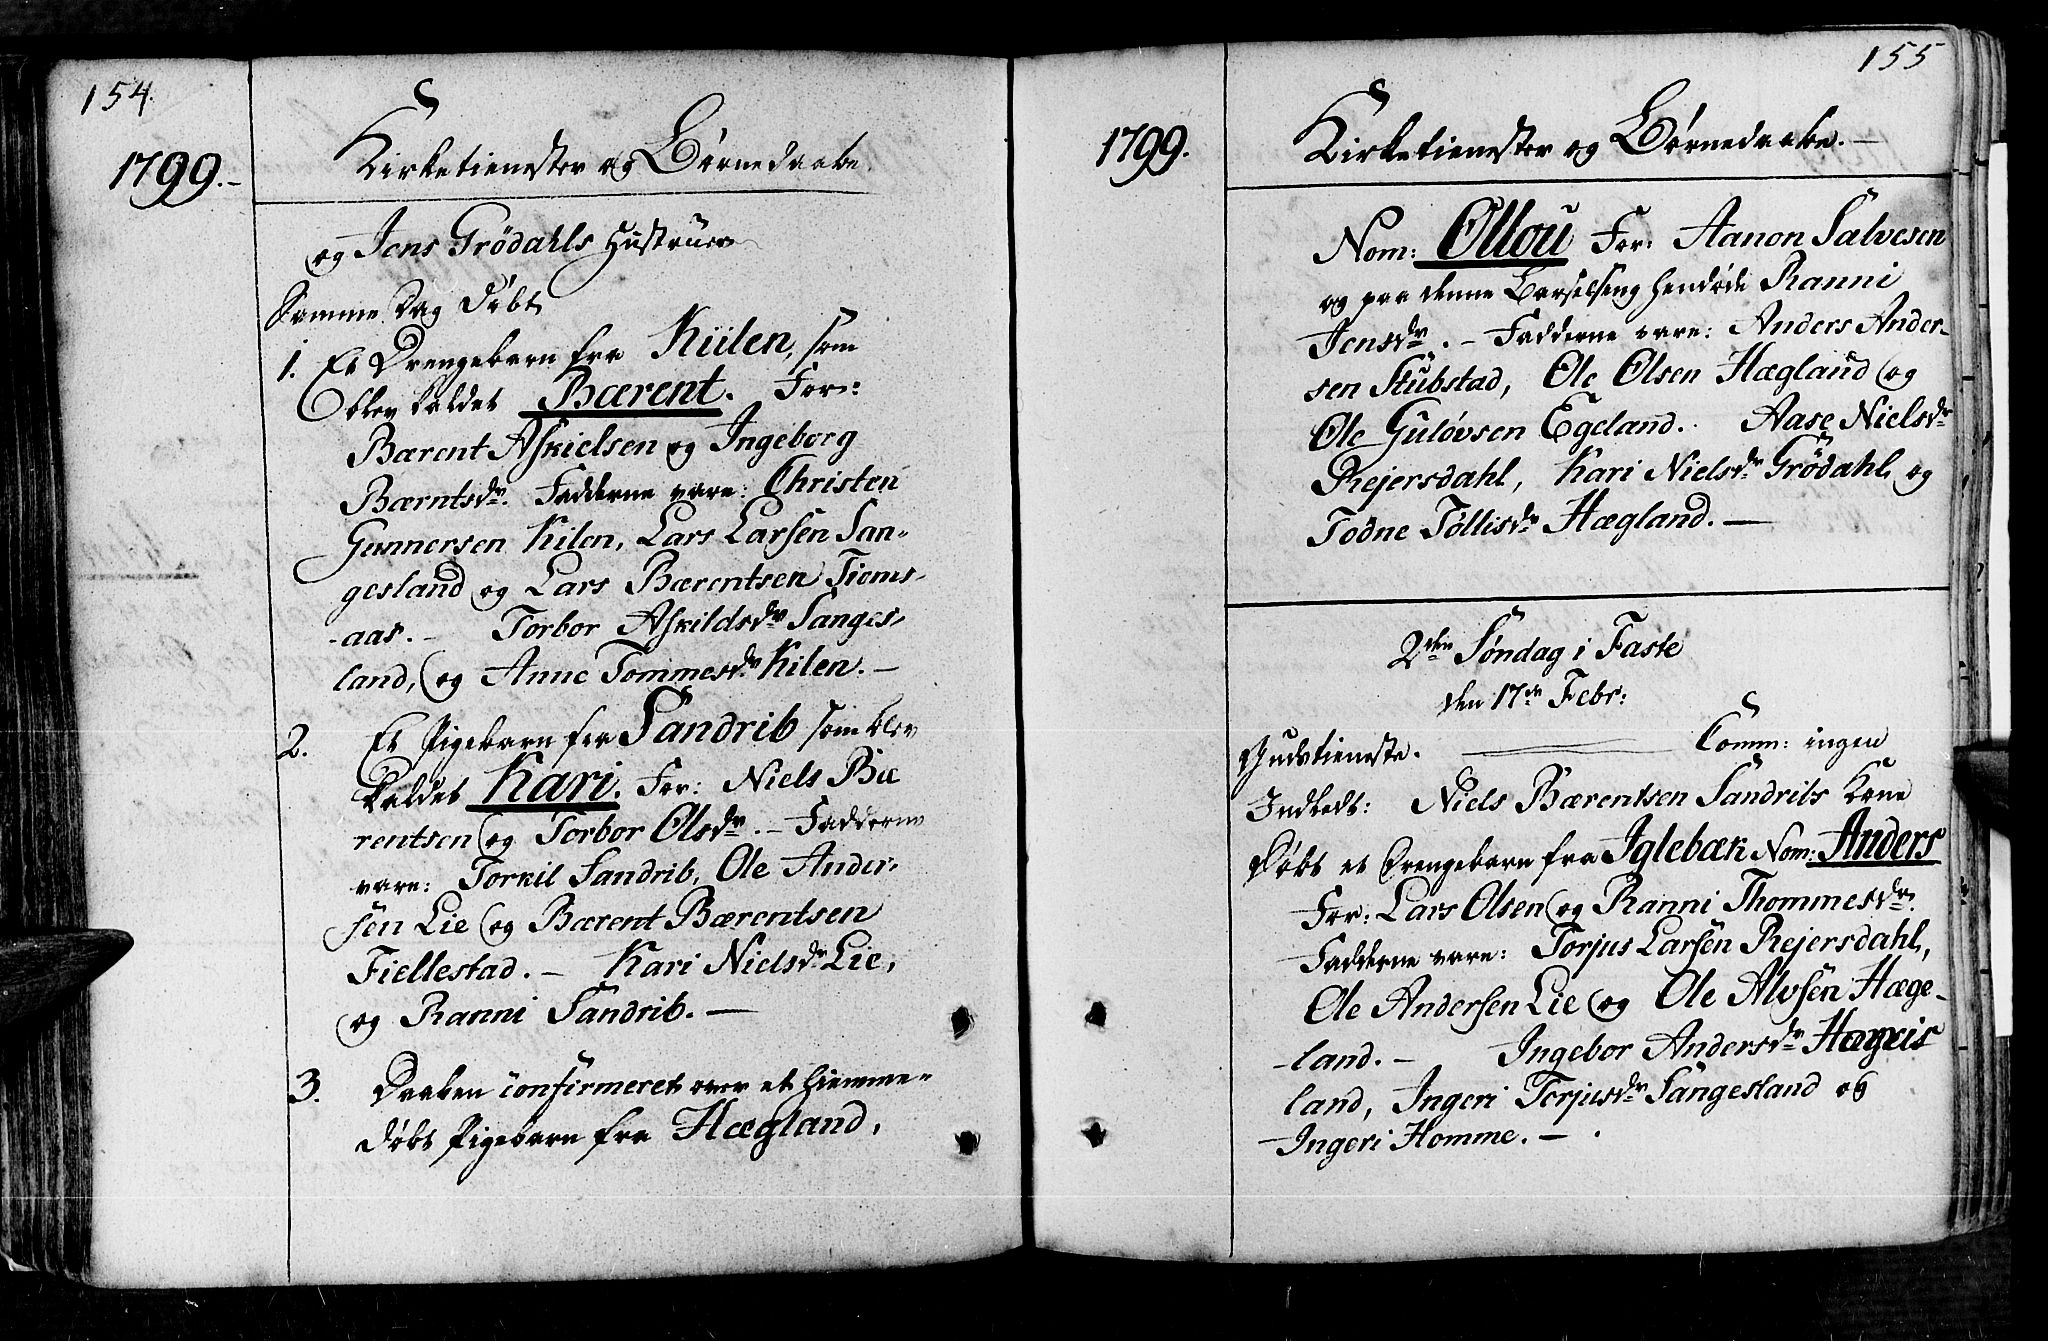 154.
1799.-
Kirketienester og Børnedaabe.
og Jens Grödahls Hustruer
Samme Dag Döbt
1. Et Drengebarn fra Kiilen, som
blev kaldet Bærent. For:
Bærent Askielsen og Ingeborg
Bærntsdr. Fadderne vare: Christen
Gunnersen Kilen, Lars Larsen San-
gesland og Lars Bærentsen Tioms-
-aas. - Torbor Askildsdr Sanges-
land, og Anne Tommesdr Kilen. -
2. Et Pigebarn fra Sandrib som blev
kaldet Kari. For: Niels Bæ
rentsen og Torbor Olsdr. - Fadderne
vare: Torkil Sandrib, Ole Ander-
sen Lie og Bærent Bærentsen
Fiellestad. - Kari Nielsdr Lie,
og Ranni Sandrib. -
3. Daaben confirmeret over et hiemme-
döbt Pigebarn fra Hægland,
155
1799.
Kirketienester og Børnedaabe. -
Nom: Ollou For: Aanon Salvesen
og paa denne Barselseng hendøde Ranni
Jensdr. - Fadderne vare: Anders Ander-
sen Stubstad, Ole Olsen Hægland og
Ole Guløvsen Egeland. Aase Nielsdr
Rejersdahl, Kari Nielsdr Grödahl og
Todne Tøllisdr Hægland. -
2den Søndag i Faste
den 17de Febr:
Gudstieneste. Comm: ingen
Indledt: Niels Bærentsen Sandribs Kone
Døbt et Drengebarn fra Iglebæk Nom: Anders
For: Lars Olsen og Ranni Thommesdr.
Fadderne vare: Torjus Larsen Rejersdahl,
Ole Andersen Lie og Ole Alvsen Hæge-
-land. - Ingebor Andersdr
land, Ingeri Torjusdr Sangesland og
Ingeri Homme. - .